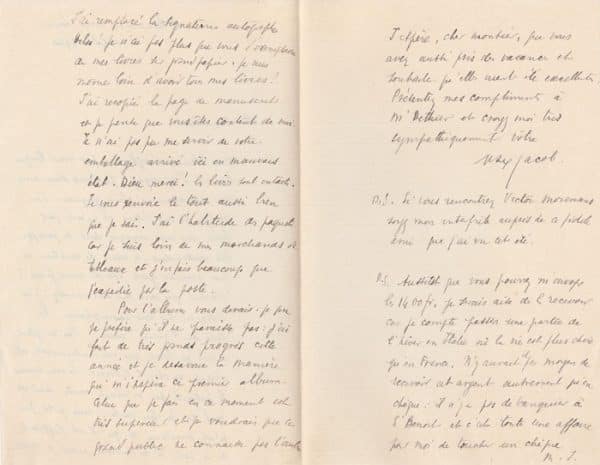 J'ai remplacé la signature autographe
hélas! je n'ai pas plus que vous d'exemplaires
de mes livres de grand papier. je suis
même loin d'avoir tous mes livres!
J'ai recopié la page de manuscrit
et je pense que vous êtes content de moi.
Je n'ai pas pu me servir de votre
emballage arrivé ici en mauvais
état. Dieu merci! les livres sont intacts.
Je vous renvoie le tout aussi bien
que je sais. J'ai l'habitude des paquets
car je suis loin de mes marchands de
tableaux et j'en fais beaucoup que
j'expédie par la poste.
Pour l'album vous devais-je que
je préfère qu'il ne paraisse pas: j'ai
fait de très grands progrès cette
année et je désavoue la manière
qui m'inspira ce premier album.
Celui que je fais en ce moment est
très supérieur et je voudrais que le
grand public ne connaisse pas l'autre
J'espère, cher monsieur, que vous
avez aussi pris des vacances et
souhaite qu'elles aient été excellentes
Présentez mes compliments à
Mr Dethier et croyez moi très
sympathiquement votre
Max Jacob.
P.S. Si vous rencontrez Victor Moremans
soyez mon interprète auprès de ce fidèle
ami que j'ai vu cet été.
P.S. Aussitôt que vous pourrez m'envoyer
les 1400 fr. je serais aise de les recevoir
car je compte passer une partie de
l'hiver en Italie où la vie est plus chère
qu'en France. N'y aurait-il pas moyen de
recevoir cet argent autrement qu'en
chèque: il n'y a pas de banquier à
St Benoit et c'est toute une affaire
pour moi de toucher un chèque
M. J.